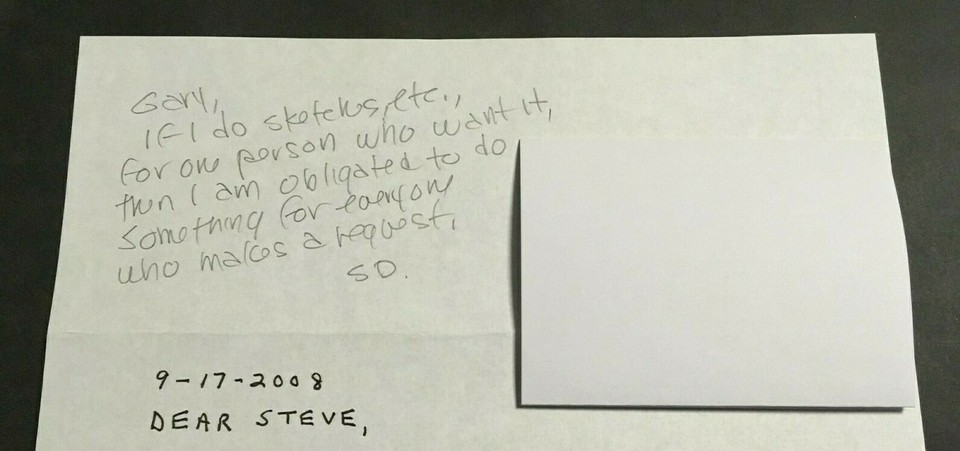 Gary,
If I do sketches, etc.,
for one person who want it,
then I am obligated to do
something for everyone
who makes a request.
SD.
9-17-2008
DEAR STEVE,